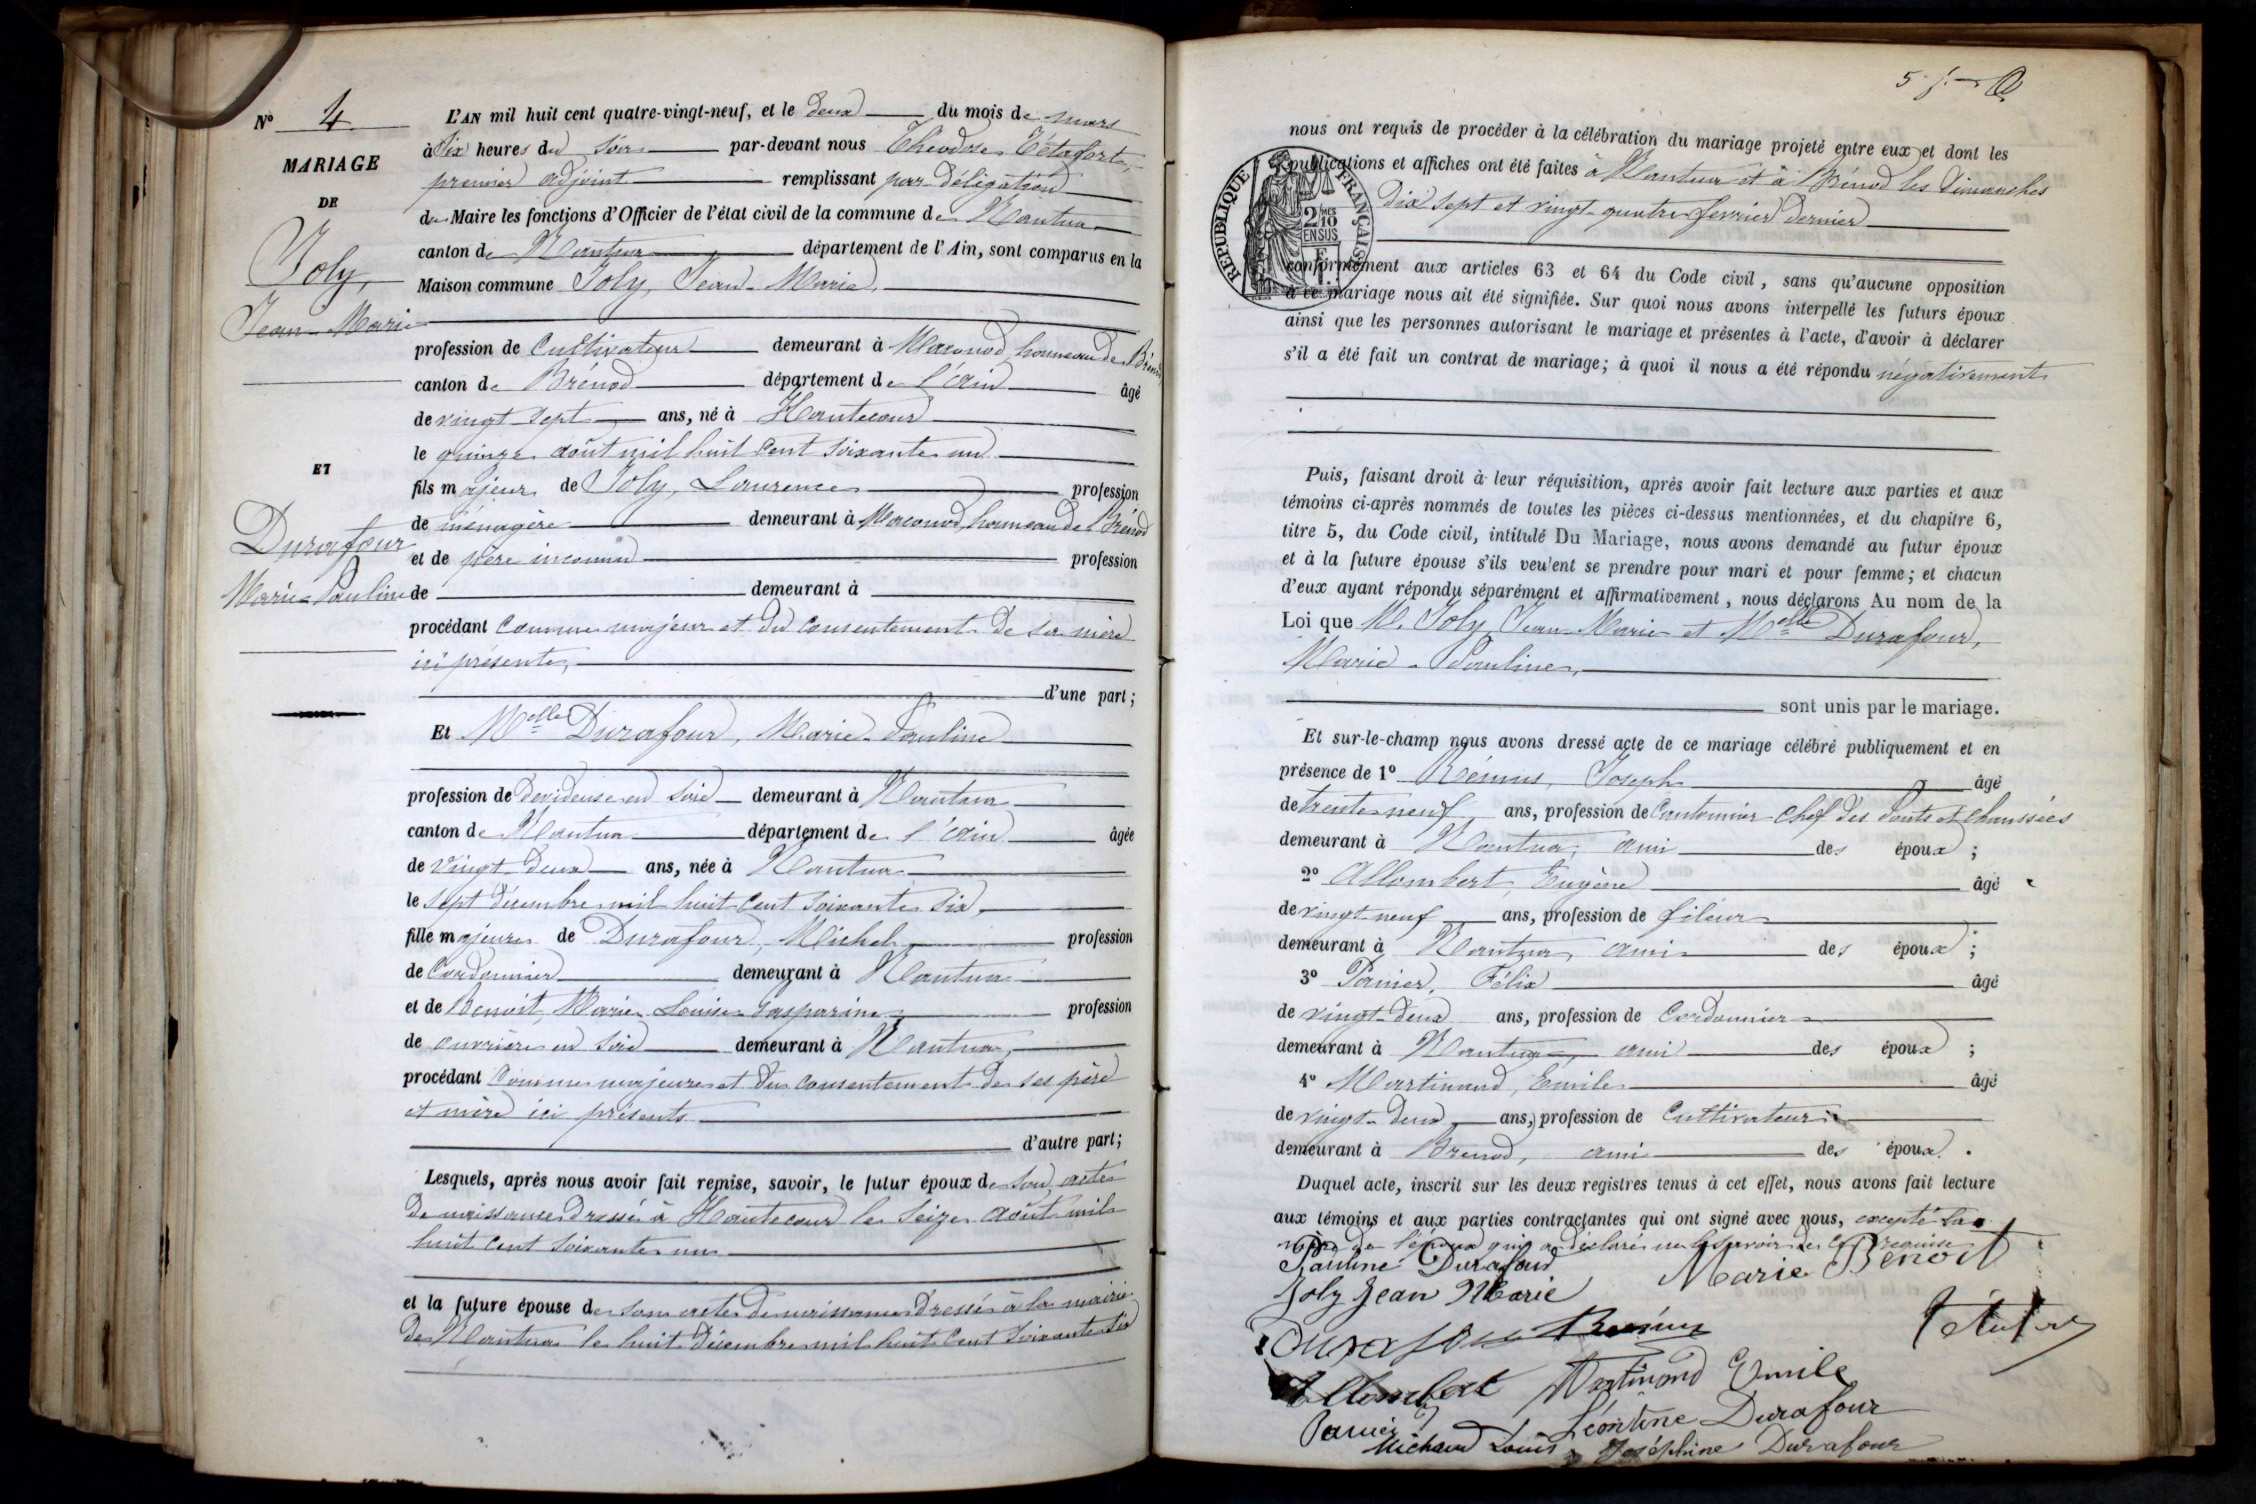 N° 4
MARIAGE
DE
Joly,
Jean-Marie
ET
Durafour
Marie-Pauline
L'AN mil huit cent quatre-vingt-neuf, et le deux du mois de mars
à Six heures du soir par-devant nous Théodore Tétafort,
premier adjoint remplissant par délégation
du Maire les fonctions d'Officier de l'état civil de la commune de Nantua
canton de Nantua département de l'Ain, sont comparus en la
Maison commune Joly, Jean-Marie,
profession de Cultivateur demeurant à Maconod, hameau de Brénod
canton de Brénod département de l'Ain âgé
de vingt-sept ans, né à Hautecour
le quinze août mil huit cent soixante un
fils majeur de Joly, Laurence profession
de ménagère demeurant à Maconod, hameau de Brénod
et de père inconnu profession
de demeurant à
procédant comme majeur et du consentement de sa mère
ici présente,
d'une part;
Et Melle Durafour, Marie-Pauline
profession de Dévideuse en soie demeurant à Nantua
canton de Nantua département de l'Ain âgée
de vingt-deux ans, née à Nantua
le sept décembre mil huit cent soixante six,
fille majeure de Durafour, Michel, profession
de Cordonnier demeurant à Nantua
et de Benoit, Marie Louise Gasparine profession
de ouvrière en soie demeurant à Nantua,
procédant comme majeure et du consentement de ses père
et mère ici présents
d'autre part;
Lesquels, après nous avoir fait remise, savoir, le futur époux de son acte
de naissance dressé à Hautecour le seize août mil
huit cent soixante un
et la future épouse de son acte de naissance dressé à la mairie
de Nantua le huit décembre mil huit cent soixante six
nous ont requis de procéder à la célébration du mariage projeté entre eux et dont les
publications et affiches ont été faites à Nantua et à Brénod les dimanches
dix sept et vingt-quatre février dernier
RÉPUBLIQUE FRANÇAISE
2 MES
10
EN SUS
conformément aux articles 63 et 64 du Code civil, sans qu'aucune opposition
à ce mariage nous ait été signifiée. Sur quoi nous avons interpellé les futurs époux
ainsi que les personnes autorisant le mariage et présentes à l'acte, d'avoir à déclarer
s'il a été fait un contrat de mariage; à quoi il nous a été répondu négativement
Puis, faisant droit à leur réquisition, après avoir fait lecture aux parties et aux
témoins ci-après nommés de toutes les pièces ci-dessus mentionnées, et du chapitre 6,
titre 5, du Code civil, intitulé Du Mariage, nous avons demandé au futur époux
et à la future épouse s'ils veulent se prendre pour mari et pour femme; et chacun
d'eux ayant répondu séparément et affirmativement, nous déclarons Au nom de la
Loi que M. Joly Jean-Marie et Melle Durafour,
Marie-Pauline,
sont unis par le mariage.
Et sur-le-champ nous avons dressé acte de ce mariage célébré publiquement et en
présence de 1° Joseph âgé
de trente neuf ans, profession de Cantonnier chef des Ponts et chaussées
demeurant à Nantua, ami des époux;
2° Allombert, Eugène âgé
de vingt-neuf ans, profession de fileur
demeurant à Nantua, ami des époux;
3° Panier, Félix âgé
de vingt-deux ans, profession de Cordonnier
demeurant à Nantua, ami des époux;
4° Martinand, Emile âgé
de vingt-deux ans, profession de Cultivateur
demeurant à Brenod, ami des époux.
Duquel acte, inscrit sur les deux registres tenus à cet effet, nous avons fait lecture
aux témoins et aux parties contractantes qui ont signé avec nous, excepté la
mère de l'époux qui a déclaré ne le savoir de ce requise
Pauline Durafour Marie Benoit
Joly Jean Marie
Durafour
Allombert Martinand Emile
Panier Léontine Durafour
Michaud Louis Joséphine Durafour